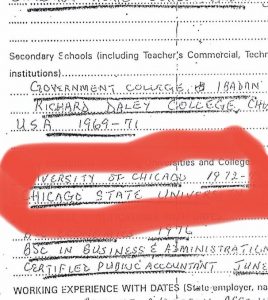 Secondary Schools (including Teacher's Commercial, Techn
institutions)
GOVERNMENT COLLEGE IBADAN
RICHARD DALEY COLLEGE, CH
U.S.A 1969-71
sities and College
VERSITY OF CHICAGO 1972-
HICAGO STATE UNIVE
1976
BSC IN BUSINESS & ADMINISTRATION
CERTIFIED PUBLIC ACCOUNTANT JUNE
WORKING EXPERIENCE WITH DATES (State employer, na